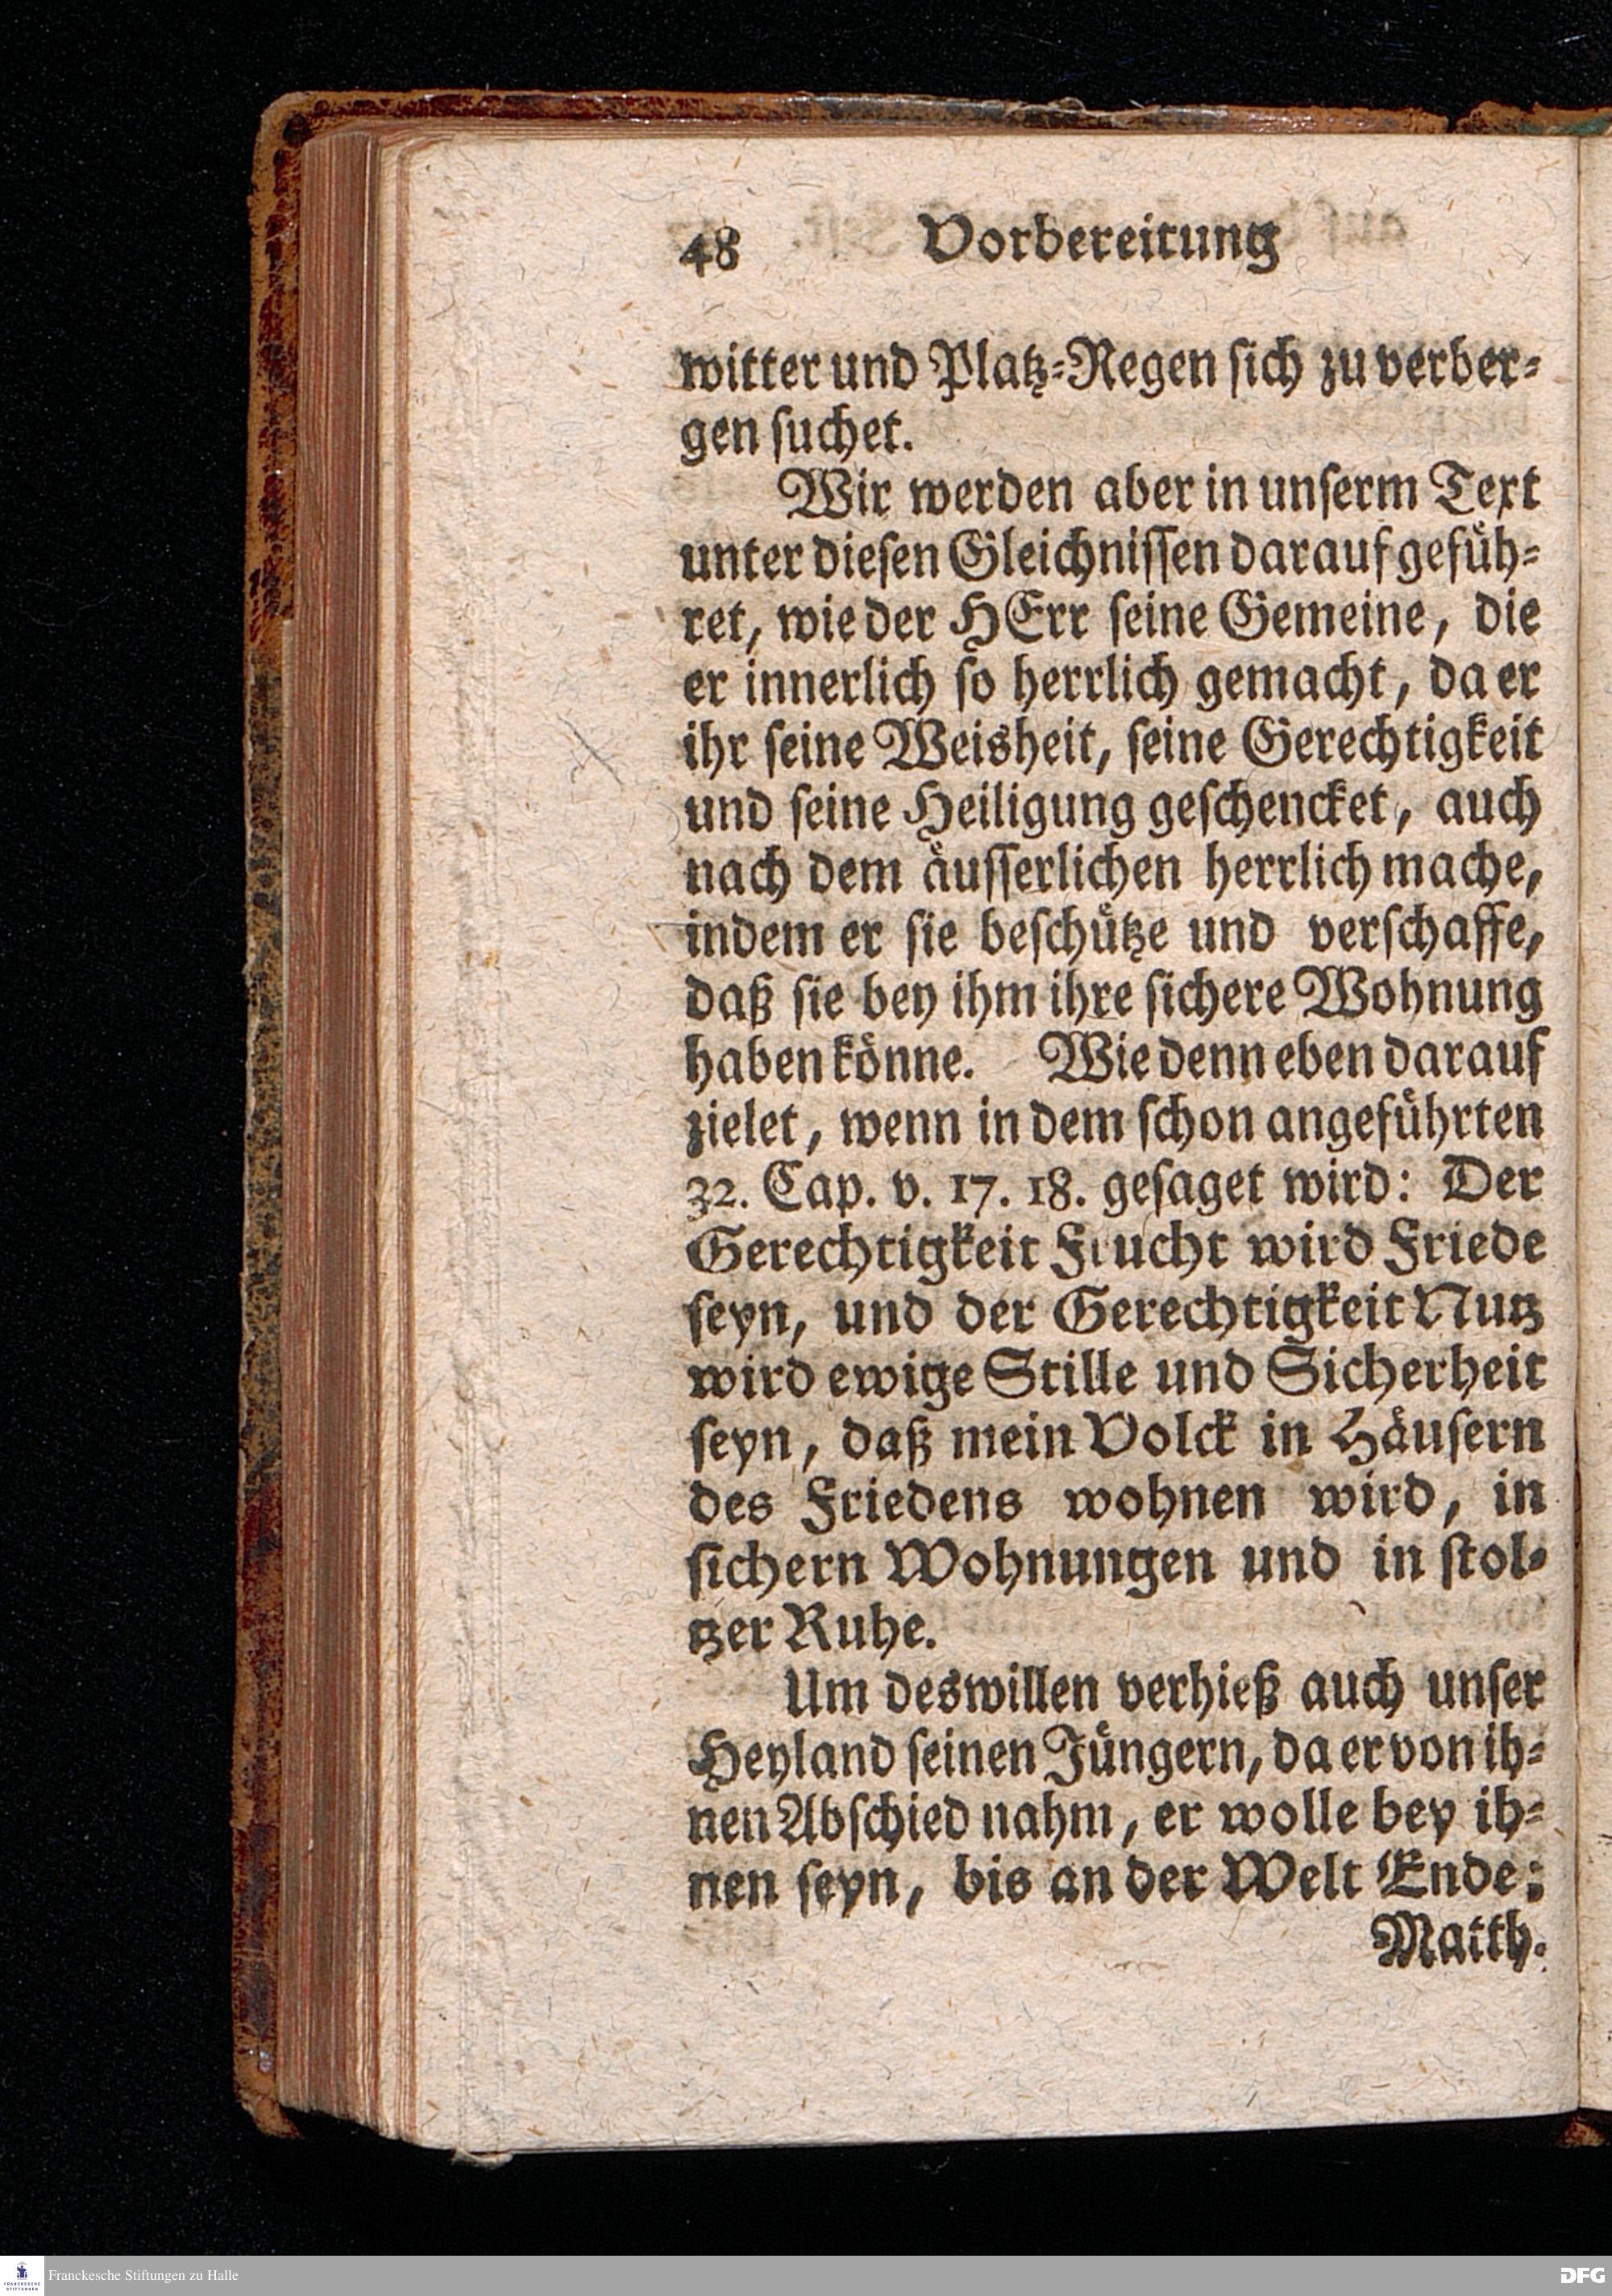 48 Vorbereitung
witter und Platz-Regen sich zu verber-
gen suchet.
Wir werden aber in unserm Text
unter diesen Gleichnissen darauf gefüh-
ret, wie der HErr seine Gemeine, die
er innerlich so herrlich gemacht, da er
ihr seine Weisheit, seine Gerechtigkeit
und seine Heiligung geschencket, auch
nach dem äusserlichen herrlich mache,
indem er sie beschütze und verschaffe,
daß sie bey ihm ihre sichere Wohnung
haben könne. Wie denn eben darauf
zielet, wenn in dem schon angeführten
32. Cap. v. 17. 18. gesaget wird: Der
Gerechtigkeit Frucht wird Friede
seyn, und der Gerechtigkeit Nutz
wird ewige Stille und Sicherheit
seyn, daß mein Volck in Häusern
des Friedens wohnen wird, in
sichern Wohnungen und in stol-
tzer Ruhe.
Um deswillen verhieß auch unser
Heyland seinen Jüngern, da er von ih-
nen Abschied nahm, er wolle bey ih-
nen seyn, bis an der Welt Ende:
Matth.
FRANCKESCHE STIFTUNGEN
Franckesche Stiftungen zu Halle
DFG